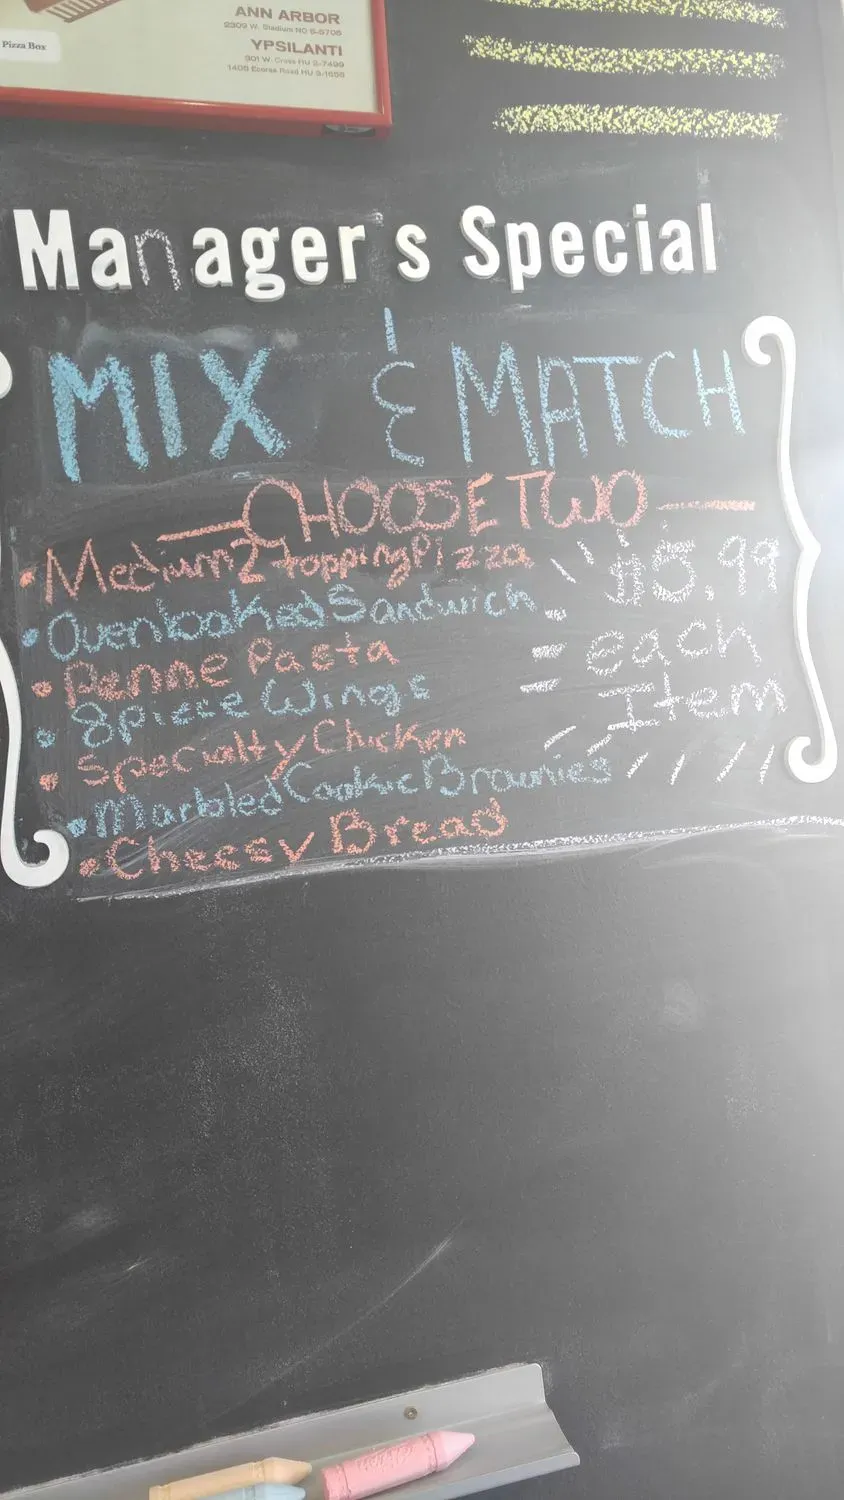 Pizza Box
ANN ARBOR
2309 W. Stadium NO 5-5705
YPSILANTI
301 W. Cross HU 2-7499
1405 Ecorse Road HU 3-1656
Manager s Special
MIX & MATCH
CHOOSE TWO
• Medium 2 topping Pizza
$5.99
• Oven baked Sandwich
each
• Penne Pasta
Item
• 8 piece Wings
• Specialty Chicken
• Marbled Cookie Brownies
• Cheesy Bread